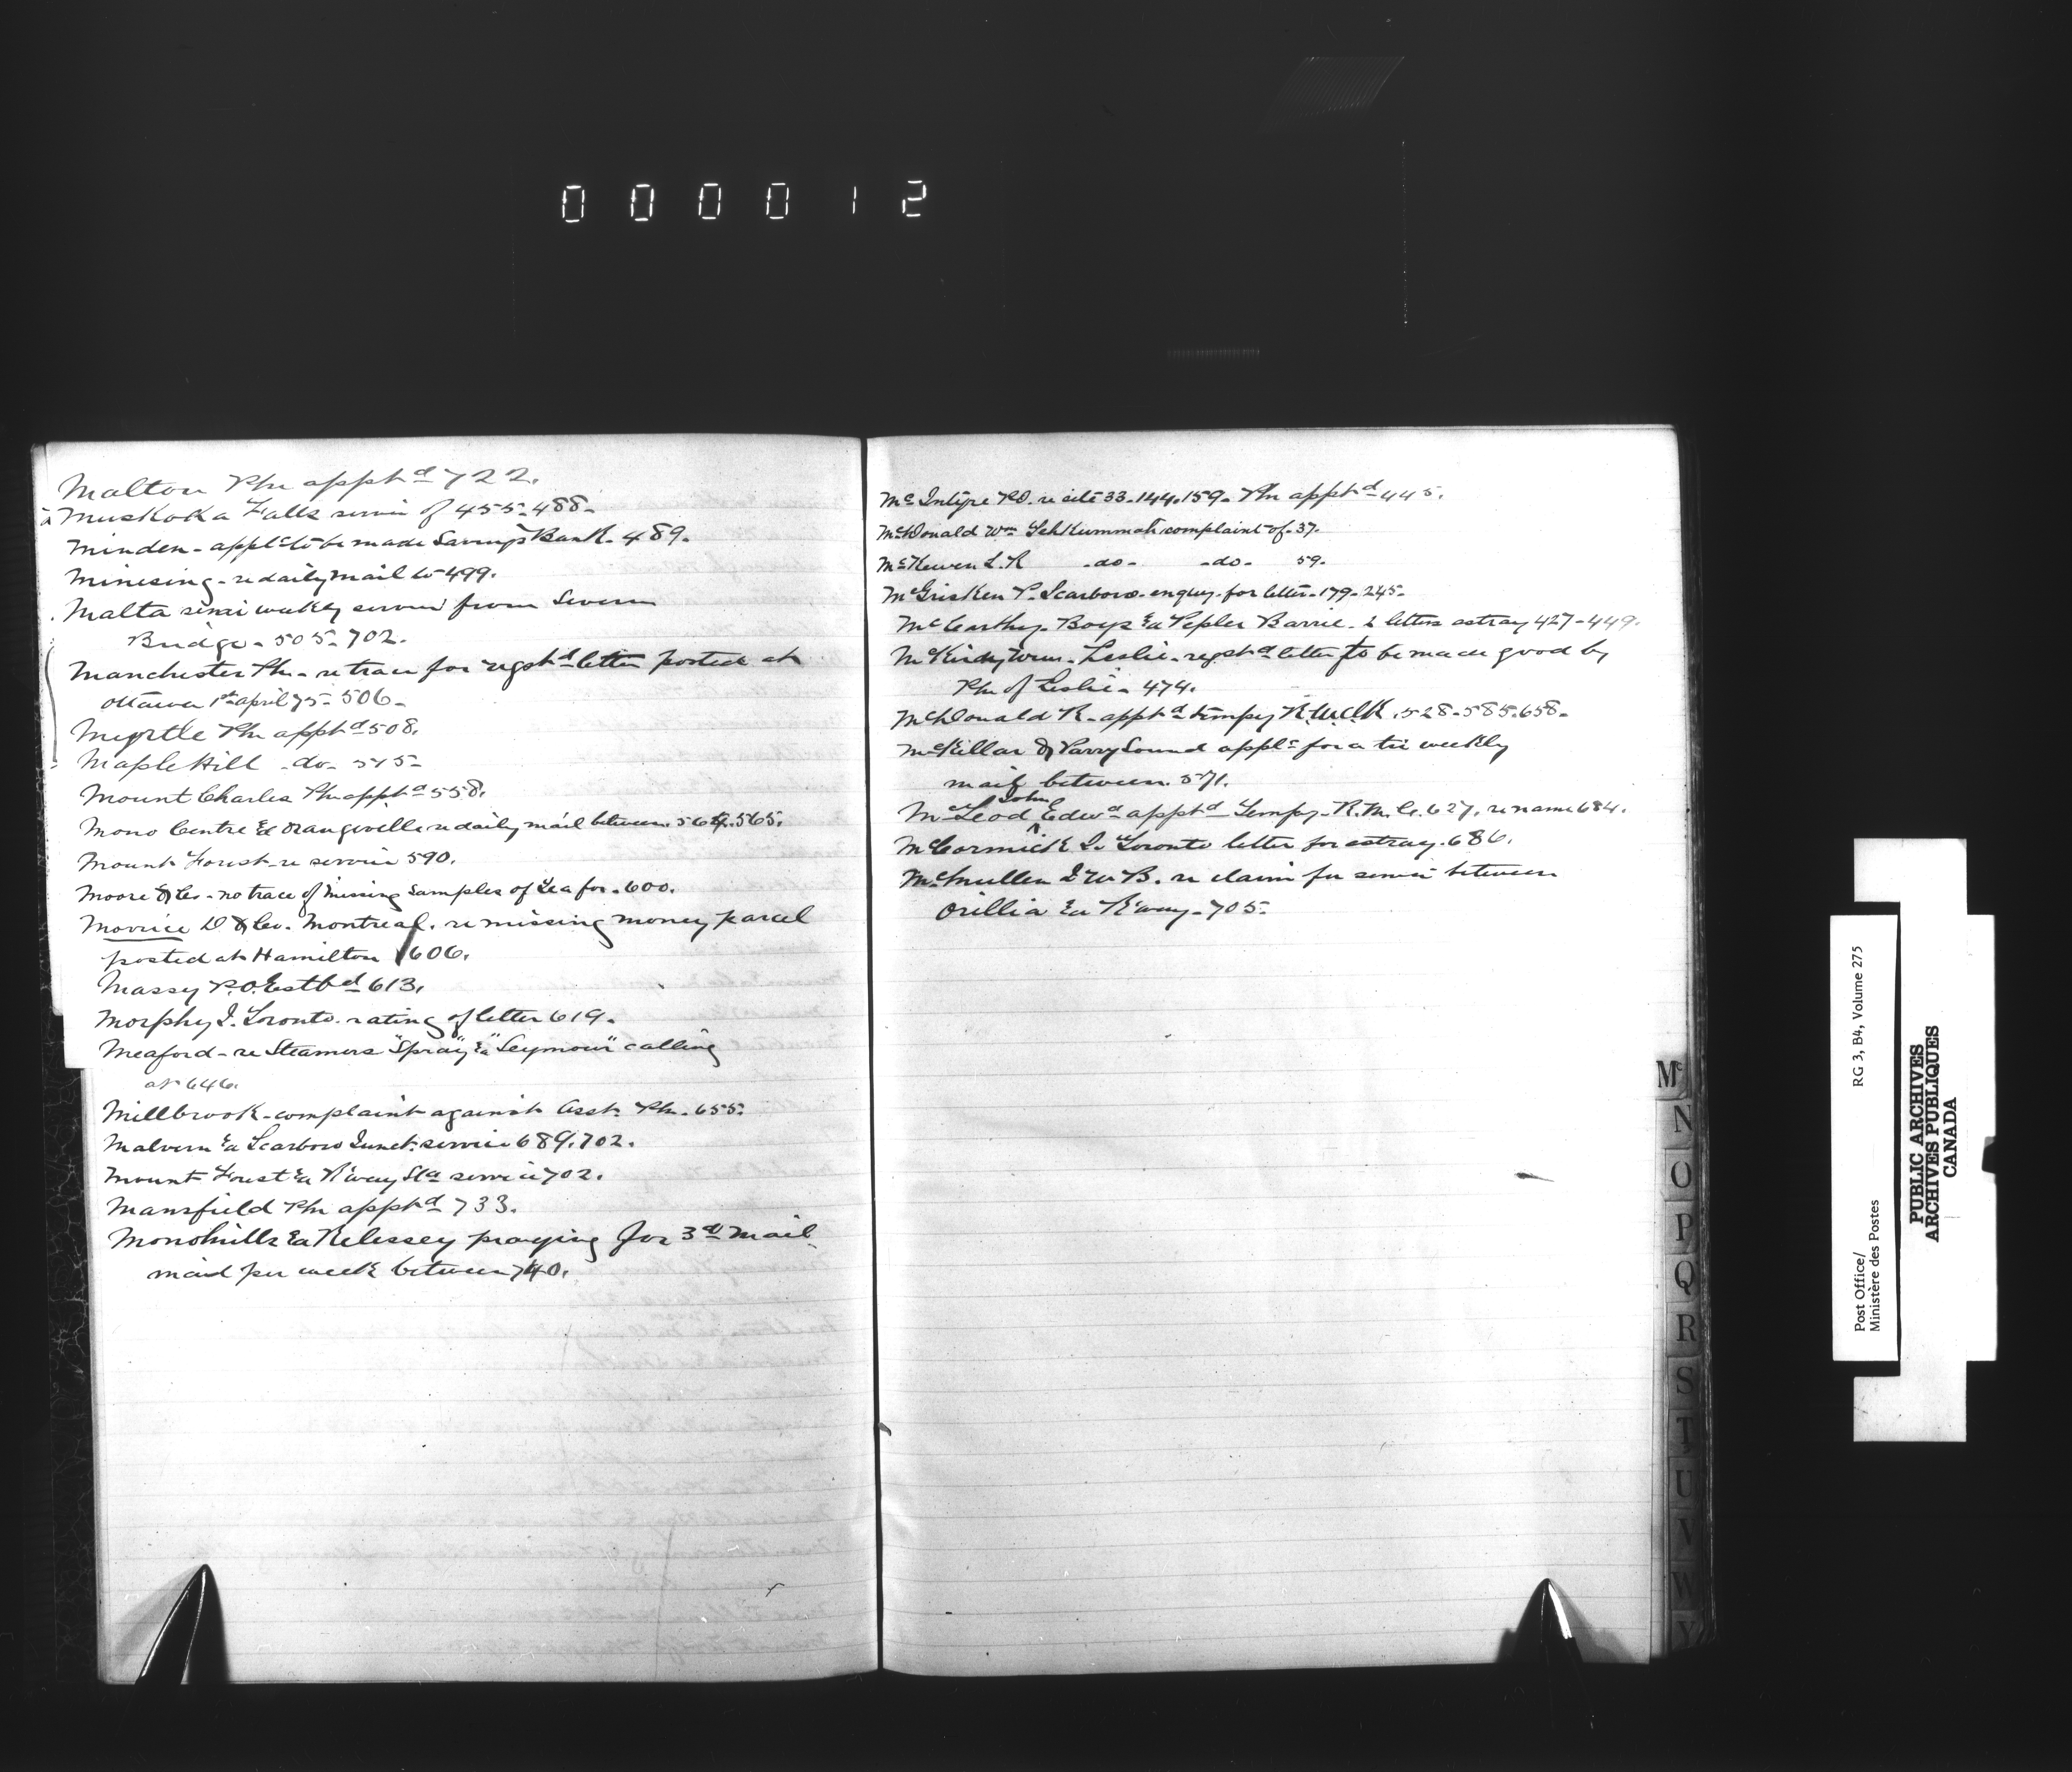 000012
Malton Pm apptd 722.
Muskoka Falls service of 455-488-
Minden - applc to be made Savings Bank. 489.
Minesing - re daily mail to 499.
Malta semi weekly service from Severn
Bridge - 505-702.
Manchester Pm - re trace for regstd letter posted at
Ottawa 1st april 75 - 506-
Myrtle Pm apptd 508.
Maple Hill -do- 545-
Mount Charles Pm apptd 558.
Mono Centre & Orangeville re daily mail between. 564.565.
Mount Forest re service 590.
Moore & Co - no trace of missing samples of Tea for - 600.
Morrice D & Co. Montreal. re missing money parcel
posted at Hamilton 606.
Massy P.O. Estbd 613.
Morphy J. Toronto. rating of letter 619.
Meaford - re Steamers "Spray" & "Seymour" calling
at 646.
Millbrook - complaint against Asst. Pm. 655.
Malvern & Scarboro Junct. service 689.702.
Mount Forest & R'way Sta service 702.
Mansfield Pm apptd 733.
Monomills & Relessey praying for 3rd Mail
mail per week between 740.
McIntyre P.O. re site 33.144.159. Pm apptd 445.
McDonald Wm Tehkummah complaint of - 37.
McKewen L.R -do- -do- 59.
McGrisken P. Scarboro - enquy. for letter - 179-245-
McCarthy. Boys & Pepler Barrie - 2 letters astray 427-449.
McKindy Wm - Leslie - regstd letter to be made good by
Pm of Leslie - 474.
McDonald R - apptd tempy R.W.Clk. 528-585.658-
McKellar & Parry Sound applc for a tri weekly
mail between. 571.
John
McLeod Edwd apptd Tempy - R.M.C. 627. re name 684.
McCormick J. Toronto letter for astray. 686.
McMullen J W B. re claim for service between
Orillia & R'way - 705-
Mc
N
O
P
Q
R
S
T
U
V
W
Y
Post Office/
Ministère des Postes
RG 3, B4, Volume 275
PUBLIC ARCHIVES
ARCHIVES PUBLIQUES
CANADA